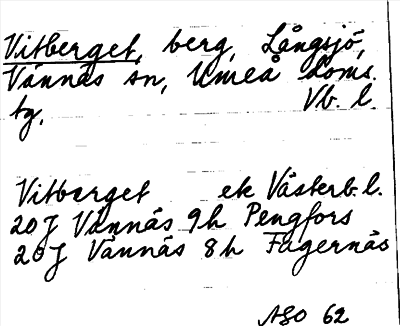 Vitberget, berg, Långsjö,
Vännäs sn, Umeå doms.
tg, Vb. l.
Vitberget ek Västerb. l.
20J Vännäs 9h Pengfors
20J Vännäs 8h Fagernäs
ASO 62